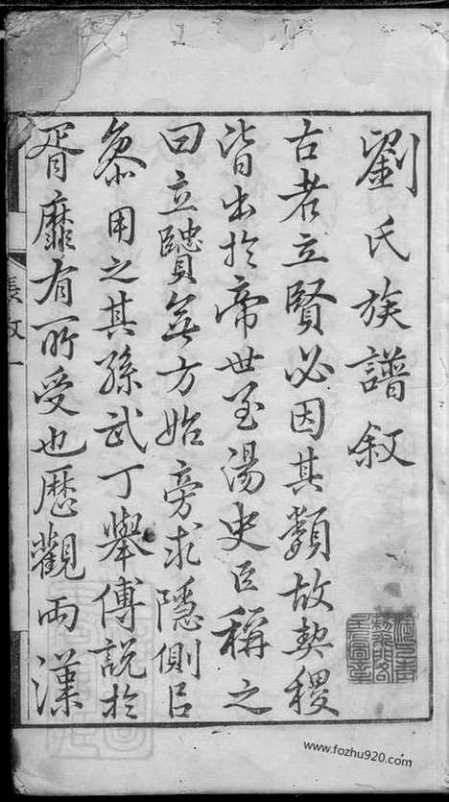 劉氏族譜叙
古者立賢必因其類故契稷
皆出於帝世至湯史臣稱之
曰立賢無方始旁求隱側臣
叅用之其孫武丁舉傅說於
胥靡有所受也歷觀兩漢
www.fozhu920.com